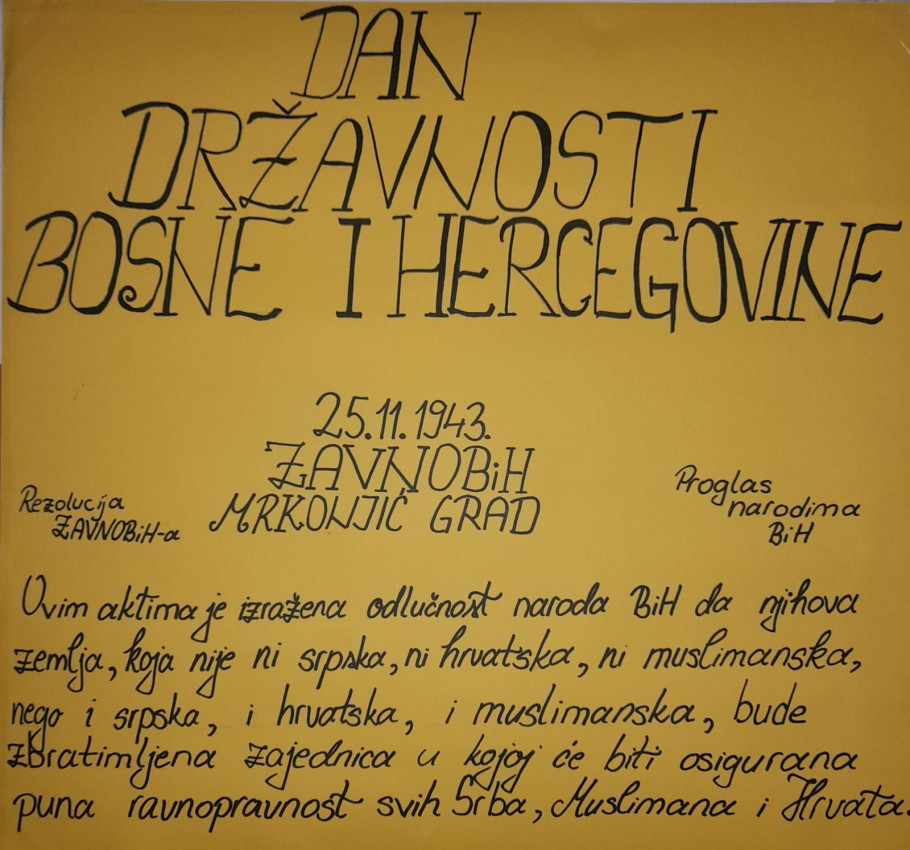 DAN
DRŽAVNOSTI
BOSNE I HERCEGOVINE
25.11.1943.
ZAVNOBiH
MRKONJIĆ GRAD
Rezolucija
ZAVNOBiH-a
Proglas
narodima
BiH
Ovim aktima je izražena odlučnost naroda BiH da njihova
zemlja, koja nije ni srpska, ni hrvatska, ni muslimanska,
nego i srpska, i hrvatska, i muslimanska, bude
zbratimljena zajednica u kojoj će biti osigurana
puna ravnopravnost svih Srba, Muslimana i Hrvata.